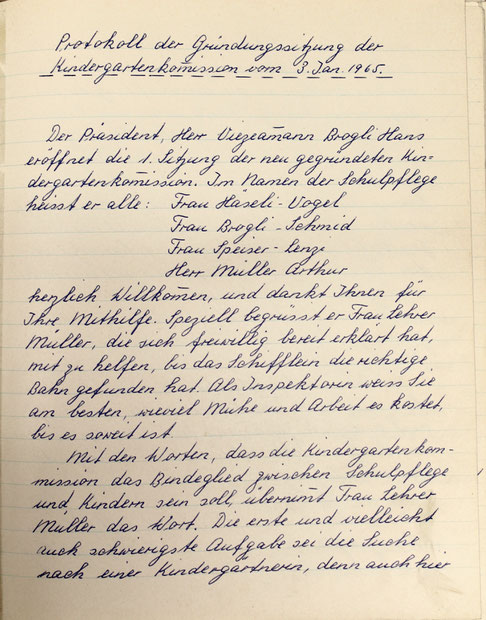 Protokoll der Gründungssitzung der
Kindergartenkom̄ission vom 3. Jan. 1965.
Der Präsident, Herr Vizeam̄ann Brogli Hans
eröffnet die 1. Sitzung der neu gegründeten Kin=
dergartenkom̄ission. Im Namen der Schulpflege
heisst er alle: Frau Häseli-Vogel
Frau Brogli-Schmid
Frau Speiser-Lenzi
Herr Müller Arthur
herzlich Willkom̄en, und dankt Ihnen für
Ihre Mithilfe. Speziell begrüsst er Frau Lehrer
Müller, die sich freiwillig bereit erklärt hat,
mit zu helfen, bis das Schifflein die richtige
Bahn gefunden hat. Als Inspektorin weiss Sie
am besten, wieviel Mühe und Arbeit es kostet,
bis es soweit ist.
Mit den Worten, dass die Kindergartenkom-
mission das Bindeglied zwischen Schulpflege
und Kindern sein soll, übernim̄t Frau Lehrer
Müller das Wort. Die erste und vielleicht
auch schwierigste Aufgabe sei die Suche
nach einer Kindergärtnerin, denn auch hier